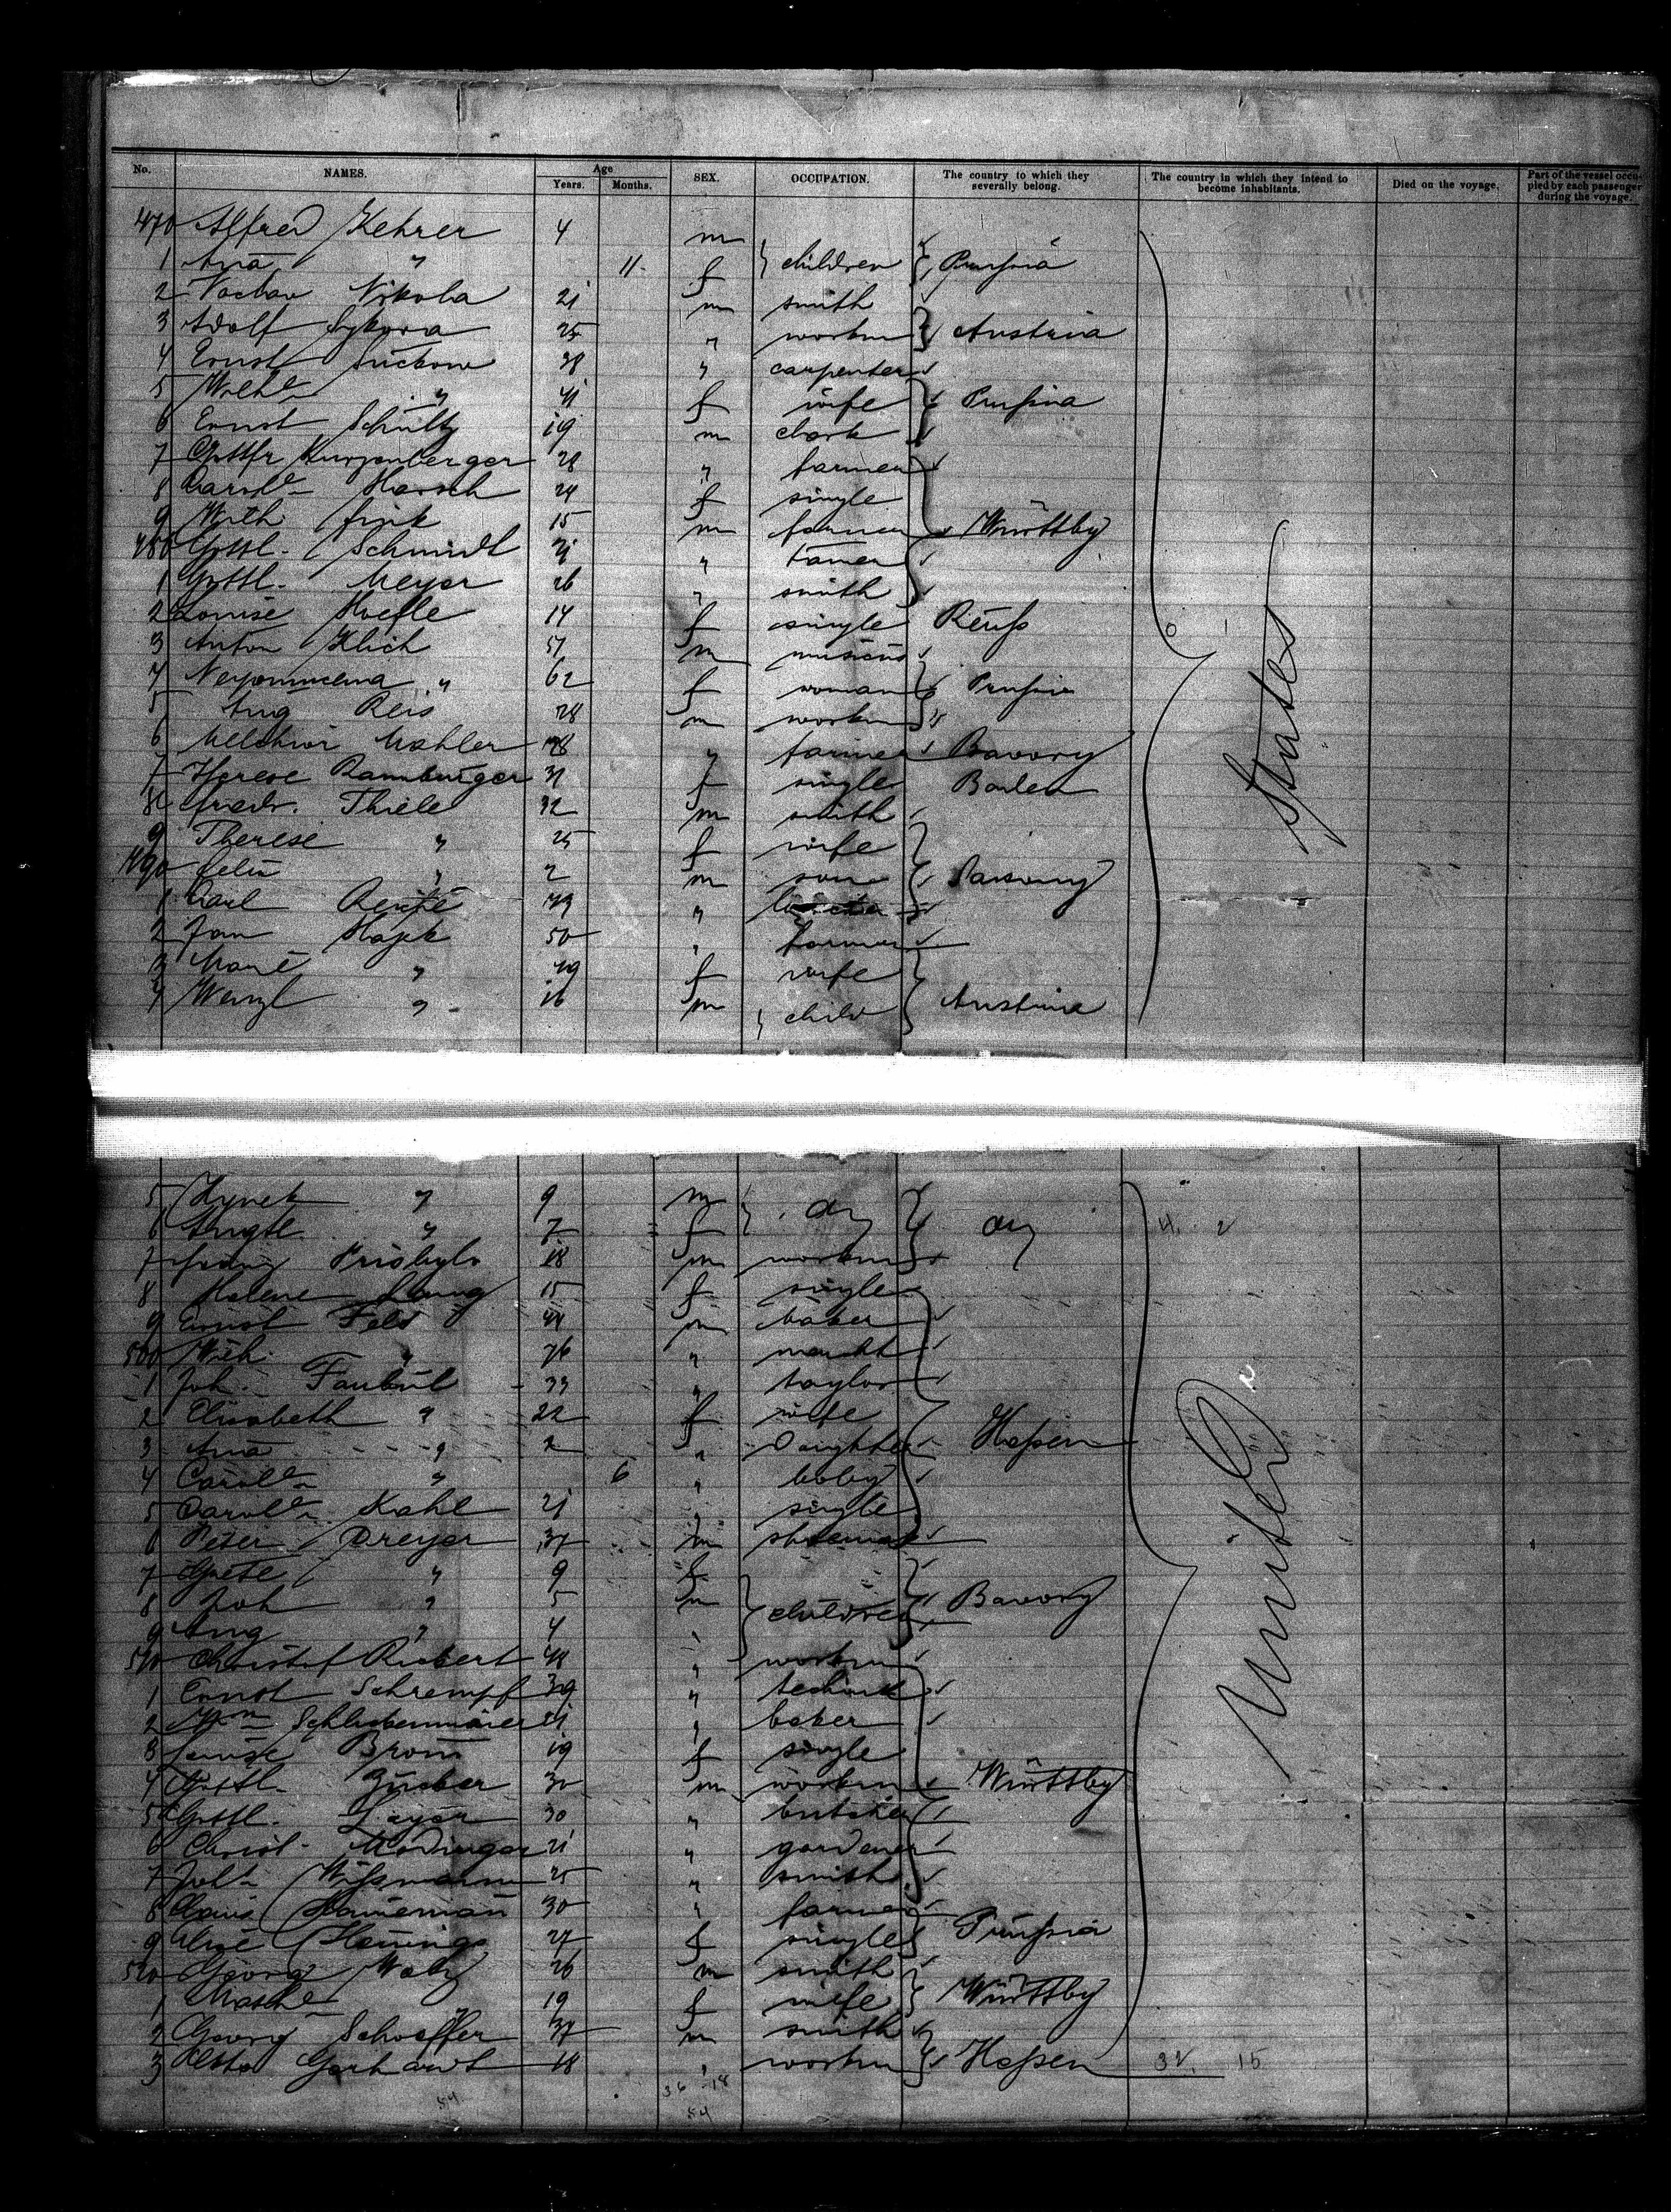 No. NAMES. Age Years. Months. SEX. OCCUPATION. The country to which they severally belong. The country in which they intend to become inhabitants. Died on the voyage. Part of the vessel occupied by each passenger during the voyage.
470 Alfred Kehrer 4 m
1 Ana " 11 f children Prussia
2 Vaclav Nikola 21 m smith
3 Adolf Sykora 25 " workm Austria
4 Ernst Suckow 38 " carpenter
5 Wilhe " 41 f wife Prussia
6 Ernst Schultz 19 m clark
7 Gottfr Kurzenberger 28 " farmer
8 Carole Harsch 24 f single
9 Wilh Fink 15 m farmer Württbg
480 Gottl. Schmidt 21 " tanner
1 Gottl. Meyer 26 " smith
2 Louise Hoefle 14 f single Reuss
3 Anton Klich 57 m musicus
4 Nepomucena " 62 f woman Prussia
5 Aug Reis 28 m workm
6 Melchior Mahler 48 " farmer Bavary
7 Therese Ramburger 31 f single Baden
8 Friedr. Thiele 32 m smith
9 Therese " 25 f wife
490 Felix " 2 m son Saxony
1 Carl 49 "
2 Jan Hajek 50 " farmer
3 Marie " 49 f wife
4 Wenzl " 16 m child Austria
States
5 Hynek " 9 m do
6 " 7 f do
7 Prisbylo 18 m workm
8 Helene 15 f single
9 Ernst Feld 44 m baker
500 Wilh. " 26 " marcht
1 Joh. Faubul 33 " taylor
2 Elisabeth " 22 f wife
3 Ana " 2 " Daughter Hessen
4 Carole " 6 " baby
5 Carole Kahl 21 " single
6 Peter Dreyer 37 m shoemak
7 Grete " 9 f
8 Joh " 5 m children Bavary
9 Aug " 4 "
510 Christof Riebert 48 " workm
1 Ernst Schrempf 39 "
2 Wm 21 " baker
3 Louise 19 f single
4 Gottl. 30 m workm Württbg
5 Gottl. Layer 30 " butcher
6 Christ. 21 " gardener
7 Joh. Wissmann 25 " smith
8 Claus Hanneman 30 " farmer
9 Henning 27 f single Prussia
520 Georg Walz 26 m smith
1 " 19 f wife Württbg
2 Georg Schaeffer 37 m smith
3 Gerhardt 18 " workm Hessen 32. 15
United
54 36 18
54